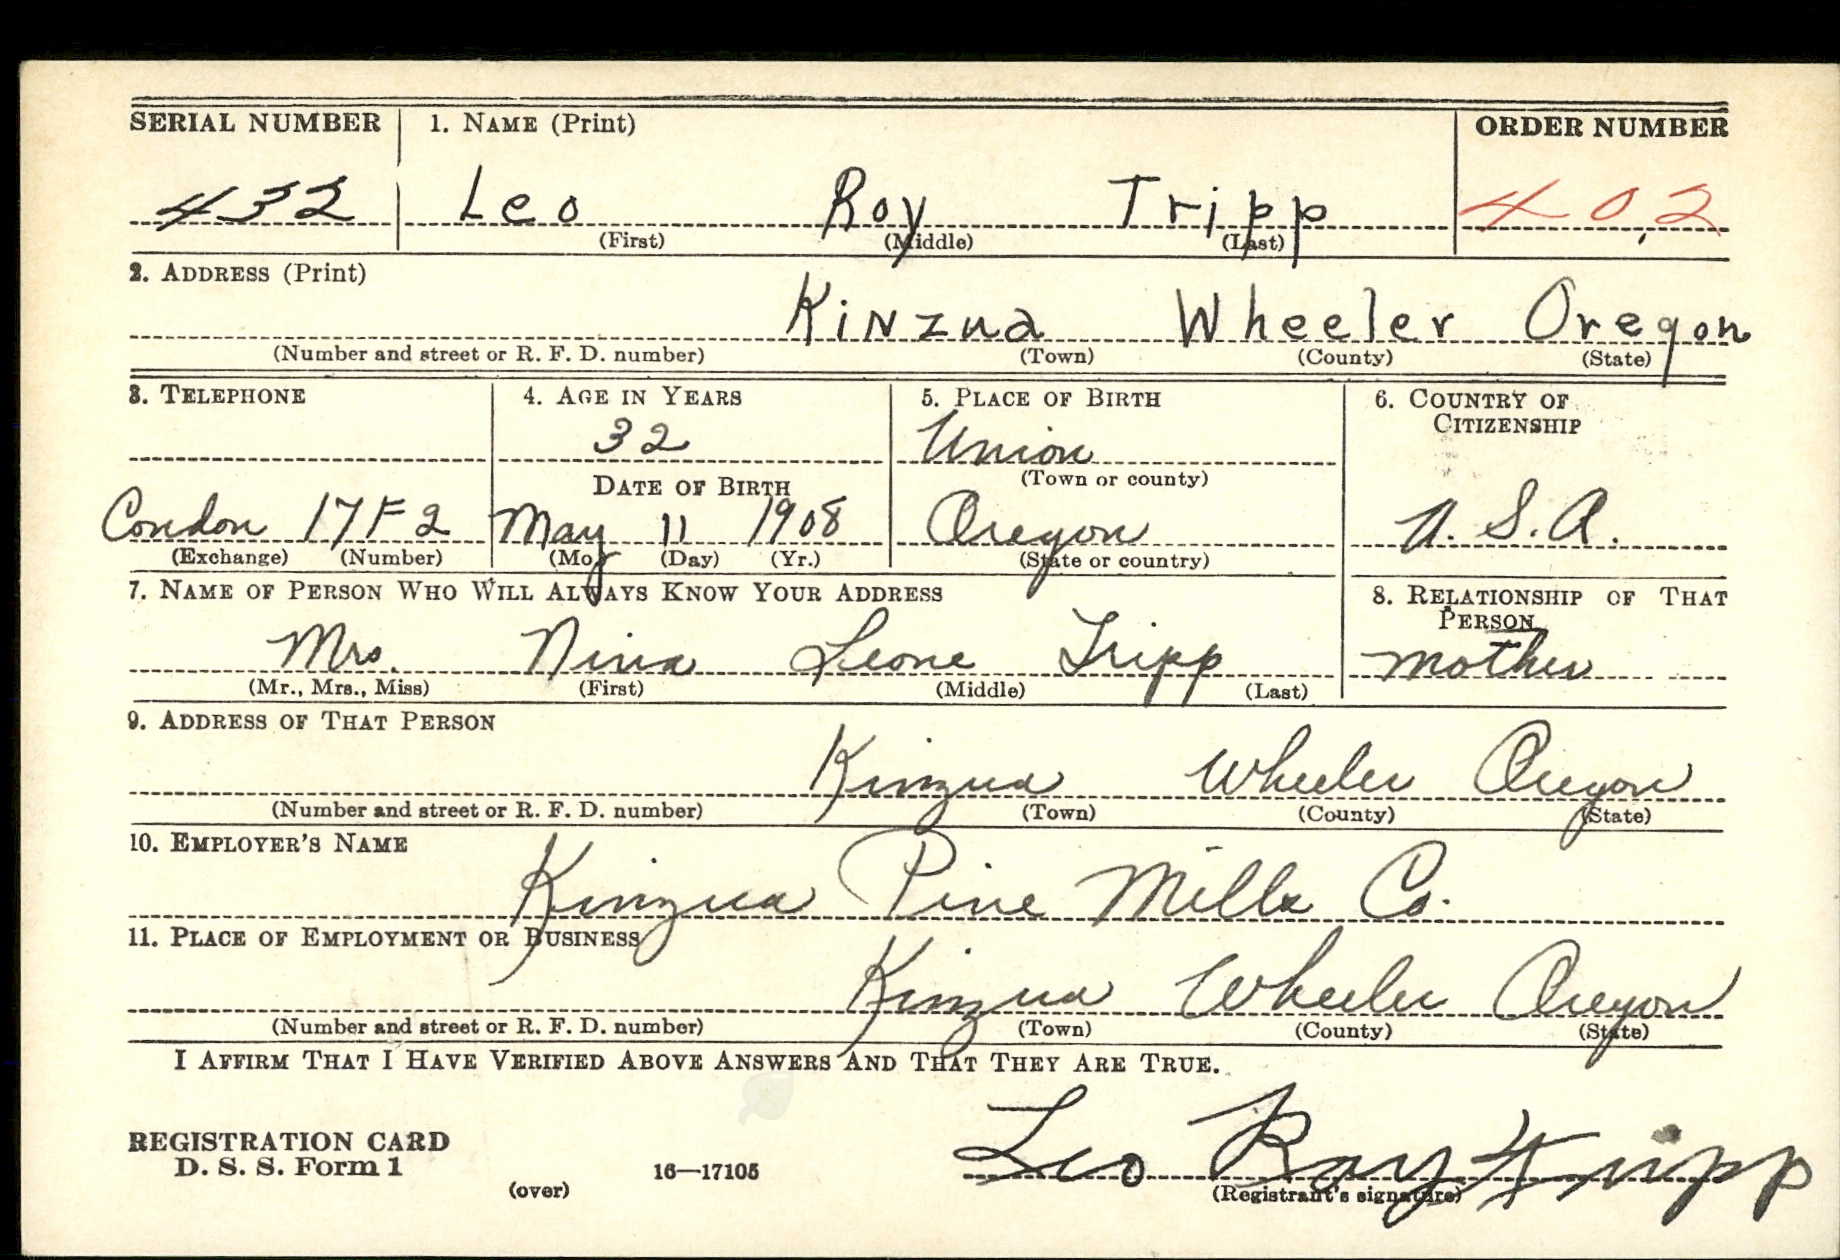 SERIAL NUMBER 1. NAME (Print) ORDER NUMBER
432 Leo Roy Tripp 402
(First) (Middle) (Last)
2. ADDRESS (Print)
Kinzua Wheeler Oregon
(Number and street or R. F. D. number) (Town) (County) (State)
3. TELEPHONE 4. AGE IN YEARS 5. PLACE OF BIRTH 6. COUNTRY OF CITIZENSHIP
32 Union
(Town or county)
DATE OF BIRTH
Condon 17F2 May 11 1908 Oregon U. S. A.
(Exchange) (Number) (Mo.) (Day) (Yr.) (State or country)
7. NAME OF PERSON WHO WILL ALWAYS KNOW YOUR ADDRESS 8. RELATIONSHIP OF THAT PERSON
Mrs. Nina Leone Tripp mother
(Mr., Mrs., Miss) (First) (Middle) (Last)
9. ADDRESS OF THAT PERSON
Kinzua Wheeler Oregon
(Number and street or R. F. D. number) (Town) (County) (State)
10. EMPLOYER'S NAME
Kinzua Pine Mills Co.
11. PLACE OF EMPLOYMENT OR BUSINESS
Kinzua Wheeler Oregon
(Number and street or R. F. D. number) (Town) (County) (State)
I AFFIRM THAT I HAVE VERIFIED ABOVE ANSWERS AND THAT THEY ARE TRUE.
Leo Roy Tripp
REGISTRATION CARD
D. S. S. Form 1 16—17105
(over) (Registrant's signature)